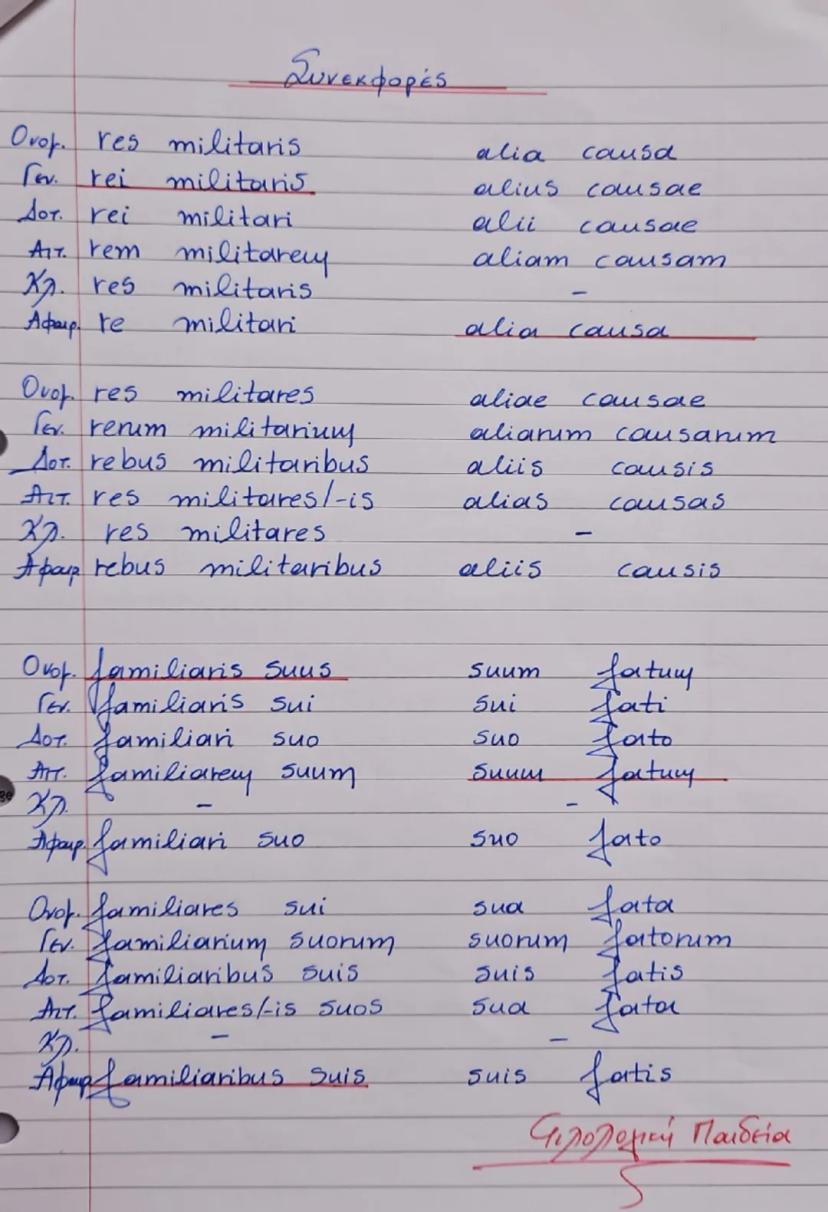 Συνεκφορές
Ονομ. res militaris alia causa
Γεν. rei militaris alius causae
Δοτ. rei militari alii causae
Αιτ. rem militarem aliam causam
Κλ. res militaris -
Αφαιρ. re militari alia causa
Ονομ. res militares aliae causae
Γεν. rerum militarium aliarum causarum
Δοτ. rebus militaribus aliis causis
Αιτ. res militares/-is alias causas
Κλ. res militares -
Αφαιρ rebus militaribus aliis causis
Ονομ. familiaris suus suum fatum
Γεν. familiaris sui sui fati
Δοτ. familiari suo suo fato
Αιτ. familiarem suum suum fatum
Κλ. - -
Αφαιρ. familiari suo suo fato
Ονομ. familiares sui sua fata
Γεν. familiarium suorum suorum fatorum
Δοτ. familiaribus suis suis fatis
Αιτ. familiares/-is suos sua fata
Κλ. - -
Αφαιρ familiaribus suis suis fatis
Φιλολογική Παιδεία